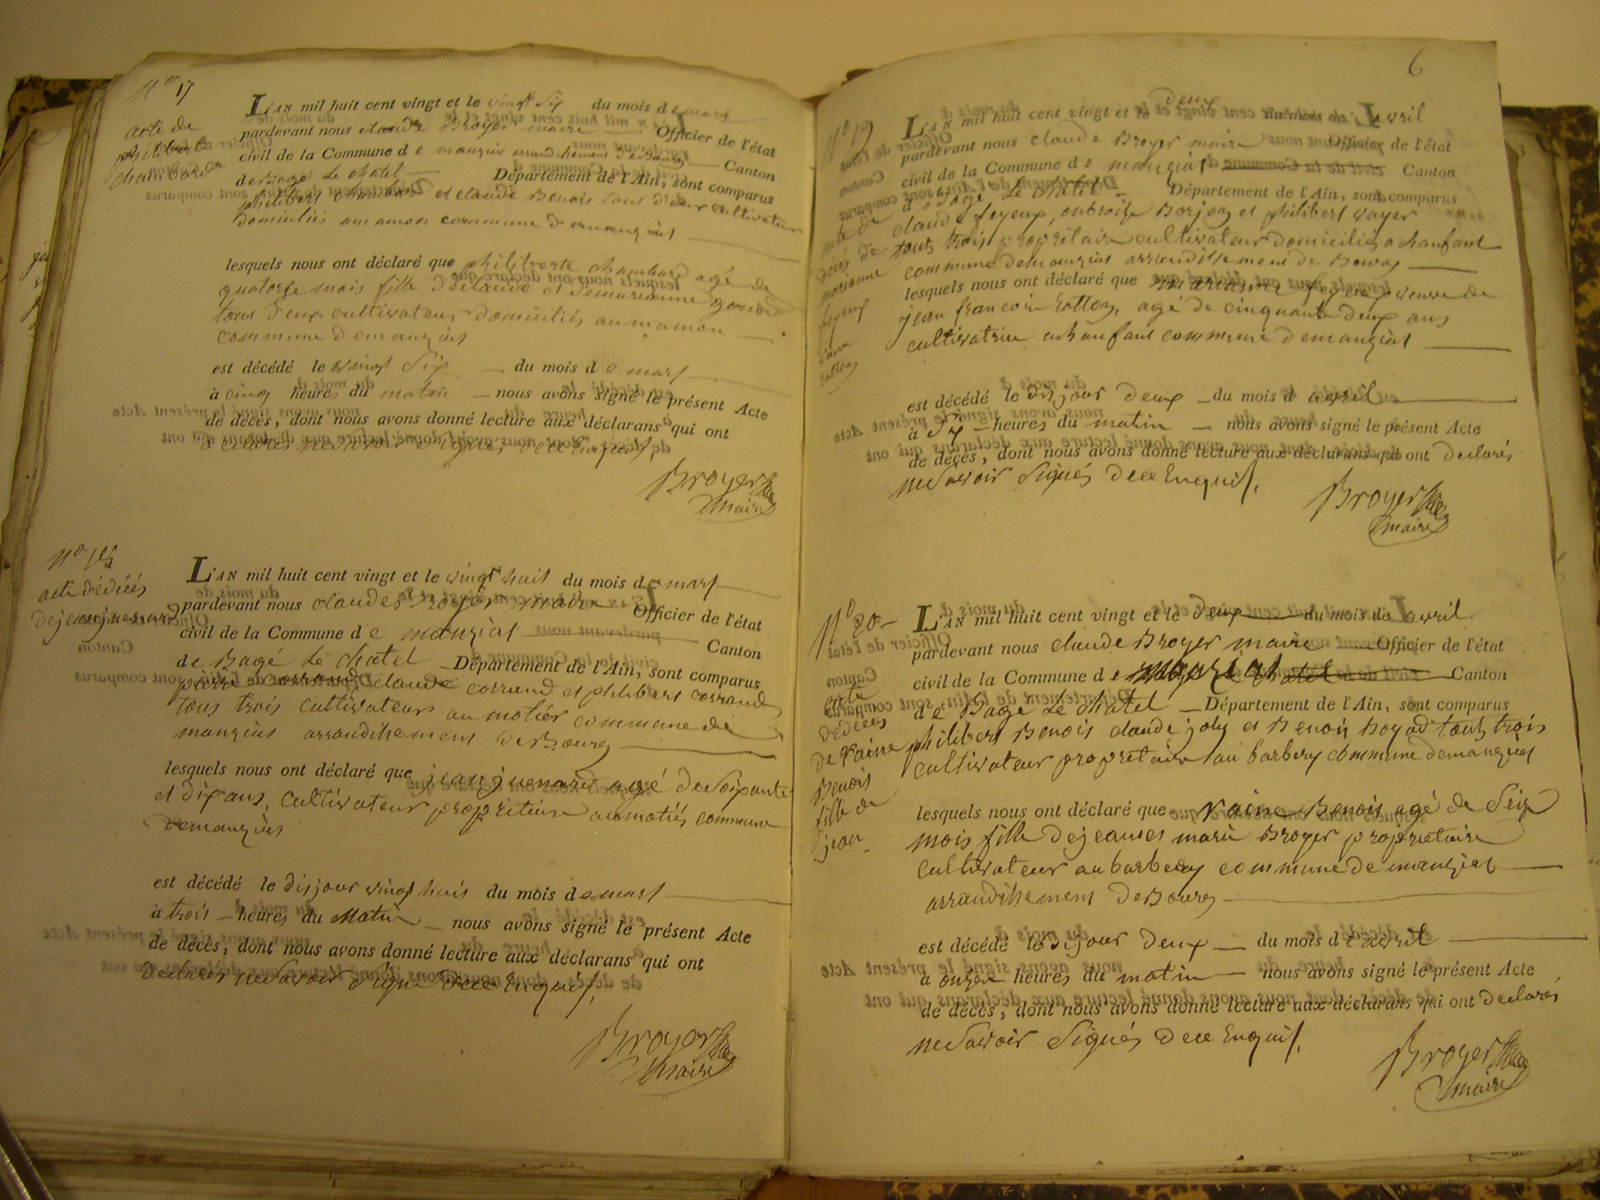 N° 17
acte de
philiberte
chambard
L'AN mil huit cent vingt et le vingt six du mois de mars
pardevant nous claude Broyer maire Officier de l'état
civil de la Commune de manziat arrondissement de Bourg Canton
de Bagé Le chatel Département de l'Ain, sont comparus
philibert chambard et claude Benois tous deux cultivateur
domiciliés au mamon commune de manziat
lesquels nous ont déclaré que philiberte chambard agé de
quatorze mois fille de claude et de marianne
tous deux cultivateur domiciliés au mamon
commune de manziat
est décédé le vingt six du mois de mars
à cinq heures du matin nous avons signé le présent Acte
de décès, dont nous avons donné lecture aux déclarans qui ont
declarés ne savoir signés de ce enquis.
Broyer
maire
N° 18
acte dédécés
de jean juenard
L'AN mil huit cent vingt et le vingt huit du mois de mars
pardevant nous claude Broyer maire Officier de l'état
civil de la Commune de manziat Canton
de Bagé Le chatel Département de l'Ain, sont comparus
pierre corrand claude corrand et philibert corrand
tous trois cultivateur au motiér commune de
manziat arrondissement de Bourg
lesquels nous ont déclaré que jean juenard agé de soixante
et dix ans, cultivateur propriétaire au motiés commune
demanziat
est décédé le dis jour vingt huis du mois de mars
à trois heures du matin nous avons signé le présent Acte
de décès, dont nous avons donné lecture aux déclarans qui ont
declarés ne savoir signé de ce enquis.
Broyer
maire
6
N° 19
acte de
décés de
marianne
feyeux
veuve
catton
L'AN mil huit cent vingt et le deux avril
pardevant nous claude Broyer maire Officier de l'état
civil de la Commune de manziat Canton
de Bagé Le chatel Département de l'Ain, sont comparus
claude feyeux, ambroise Borjon et philibert vayer
touts trois propriétaire cultivateur domiciliés a chanfant
commune demanziat arrondissement de Bourg
lesquels nous ont déclaré que marianne feyeux veuve de
jean francois catton, agé de cinquante deux ans
cultivatrice a chanfant commune demanziat
est décédé le dis jour deux du mois d avril
à six heures du matin nous avons signé le présent Acte
de décès, dont nous avons donné lecture aux déclarans qui ont declarés
ne savoir signés de ce enquis.
Broyer
maire
N° 20
acte
dédécés
de vaine
Benois
fille de
jean
L'AN mil huit cent vingt et le deux du mois de avril
pardevant nous claude Broyer maire Officier de l'état
civil de la Commune de manziat Canton
de Bagé Le chatel Département de l'Ain, sont comparus
philibert Benois claude joly et Benoit Boyad touts trois
cultivateur propriétaire au barbery commune demanziat
lesquels nous ont déclaré que vaine Benois agé de seize
mois fille de jean et marie Broyer propriétaire
cultivateur au barbery commune de manziat
arrondissement de Bourg
est décédé le dis jour deux du mois d avril
à onze heures du matin nous avons signé le présent Acte
de décès, dont nous avons donné lecture aux déclarans qui ont declarés
ne savoir signés de ce enquis.
Broyer
maire